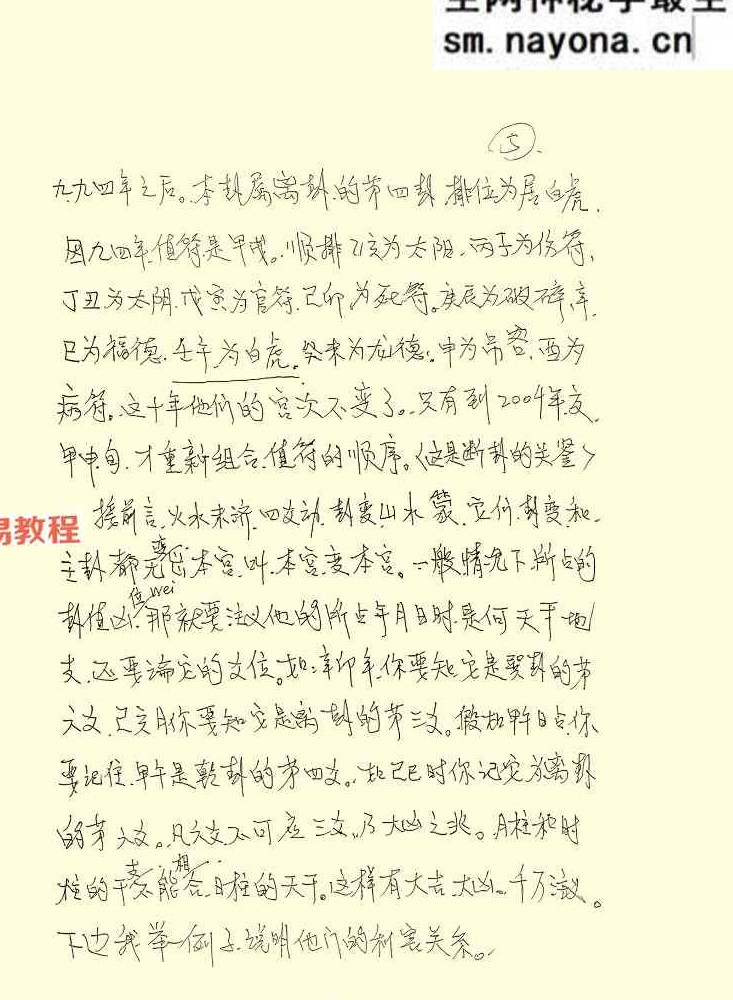 sm.nayona.cn
5.
九九四年之后。本卦属离卦的第四卦排位为居白虎.
因九四年值符是甲戌。顺排乙亥为太阳.丙子为伤符.
丁丑为太阴.戊寅为官符.己卯为死符。庚辰为破碎.辛
巳为福德.壬午为白虎。癸未为龙德.申为吊客.酉为
病符。这十年他们的宫次不变了。只有到2004年交
甲申旬.才重新组合值符的顺序。〈这是断卦的关鉴〉
易教程
接前言.火水未济.四爻动.卦变山水蒙.它们卦变和
主卦都无变出本宫.叫本宫变本宫。一般情况下所占的
卦值凶.位wei那就要注义他的所占年月日时.是何天干地
支.还要论它的爻位。如:辛卯年.你要知它是巽卦的第
六爻.己亥月你要知它是离卦的第三爻。假如甲午日占.你
要记住.甲午是乾卦的第四爻。如己巳时你记它为离卦
的第六爻。凡六爻不可应三爻.乃大凶之兆。月柱和时
柱的干支不能相合日柱的天干。这样有大吉大凶。千万注义。
下边我举一例子.说明他们的利害关系。